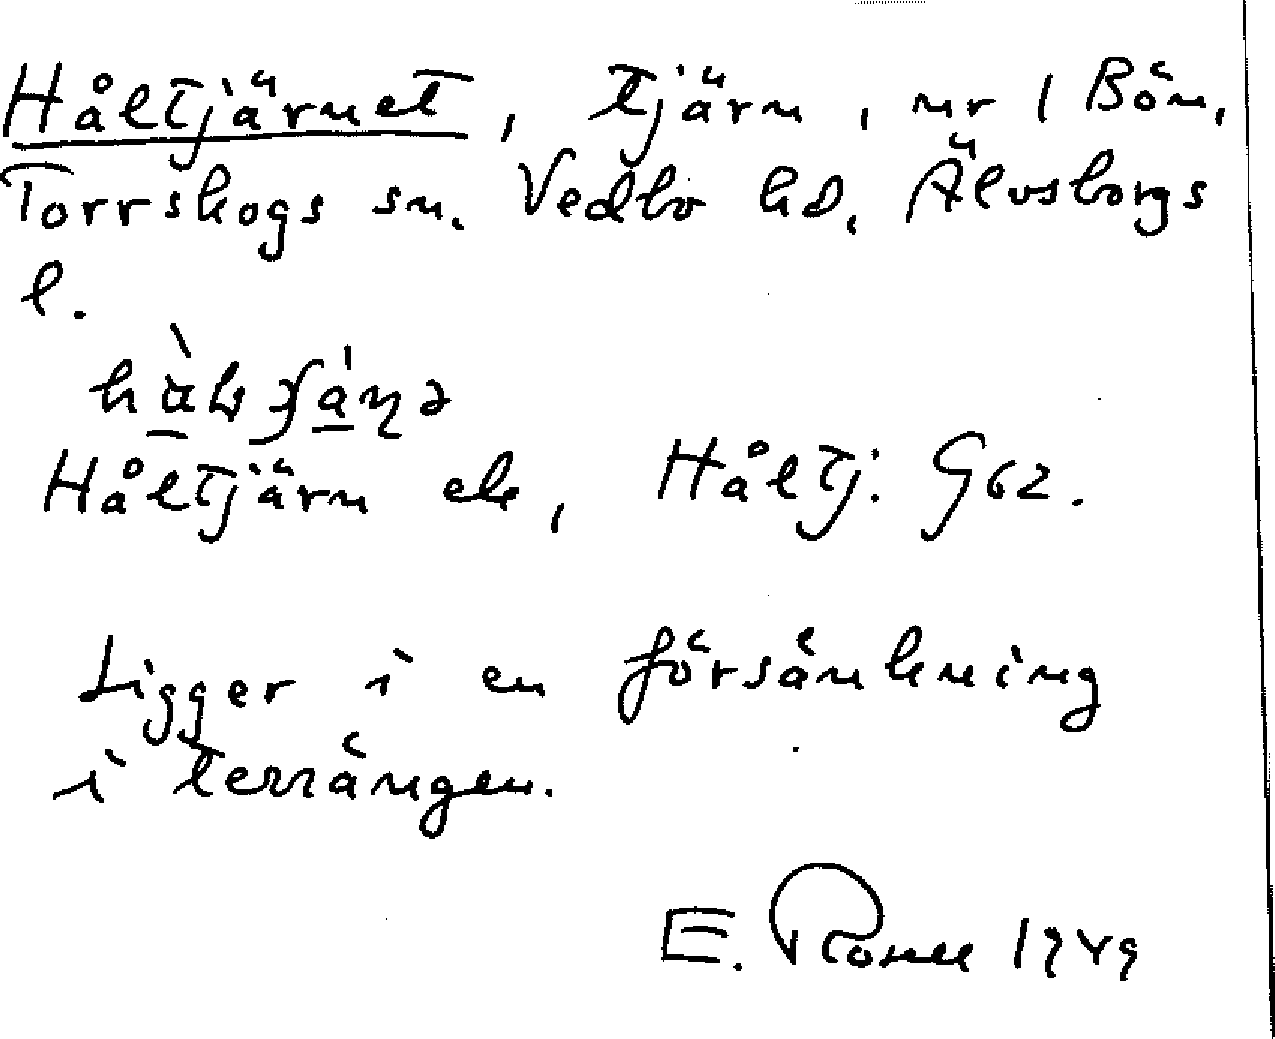 Håltjärnet, tjärn, nr 1 Bön,
Torrskogs sn. Vedbo hd, Älvsborgs
l.
Håltjärn ek, Håltj: G62.
Ligger i en försänkning
i terrängen.
E. Rosell 1949